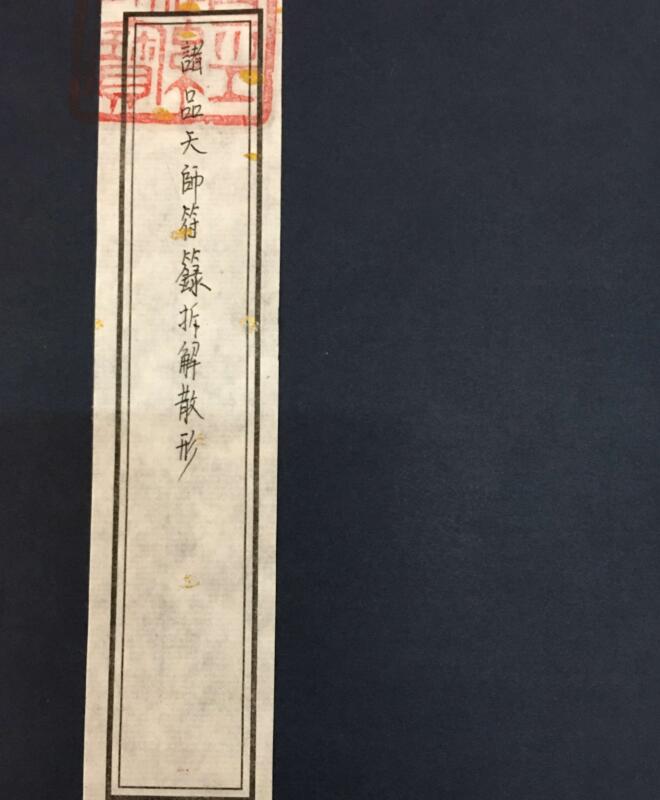 諸品天師符籙拆解散形